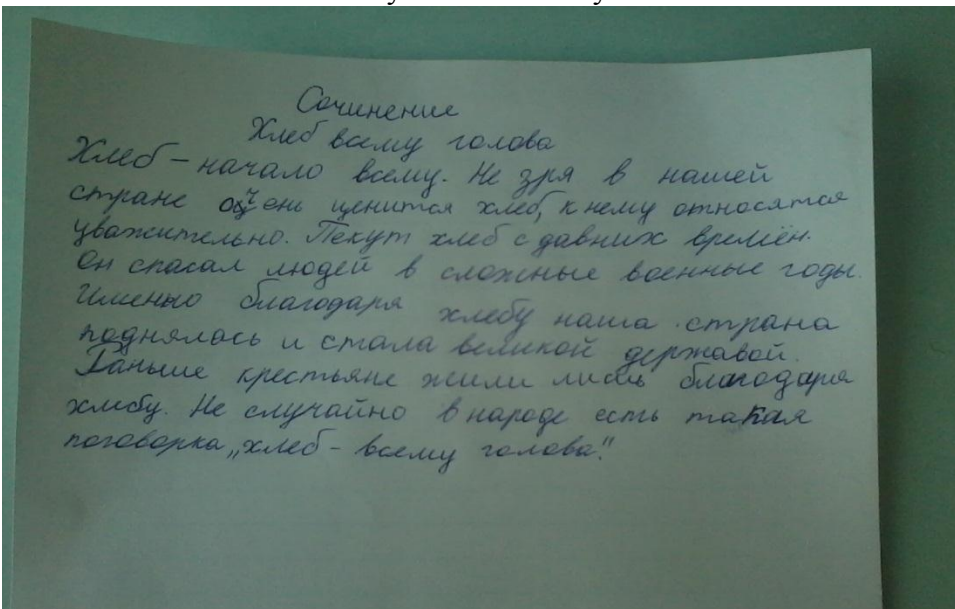 Сочинение
Хлеб всему голова
Хлеб – начало всему. Не зря в нашей
стране очень ценится хлеб, к нему относятся
уважительно. Пекут хлеб с давних времён.
Он спасал людей в сложные военные годы.
Именно благодаря хлебу наша страна
поднялась и стала великой державой.
Раньше крестьяне жили лишь благодаря
хлебу. Не случайно в народе есть такая
поговорка „хлеб – всему голова".